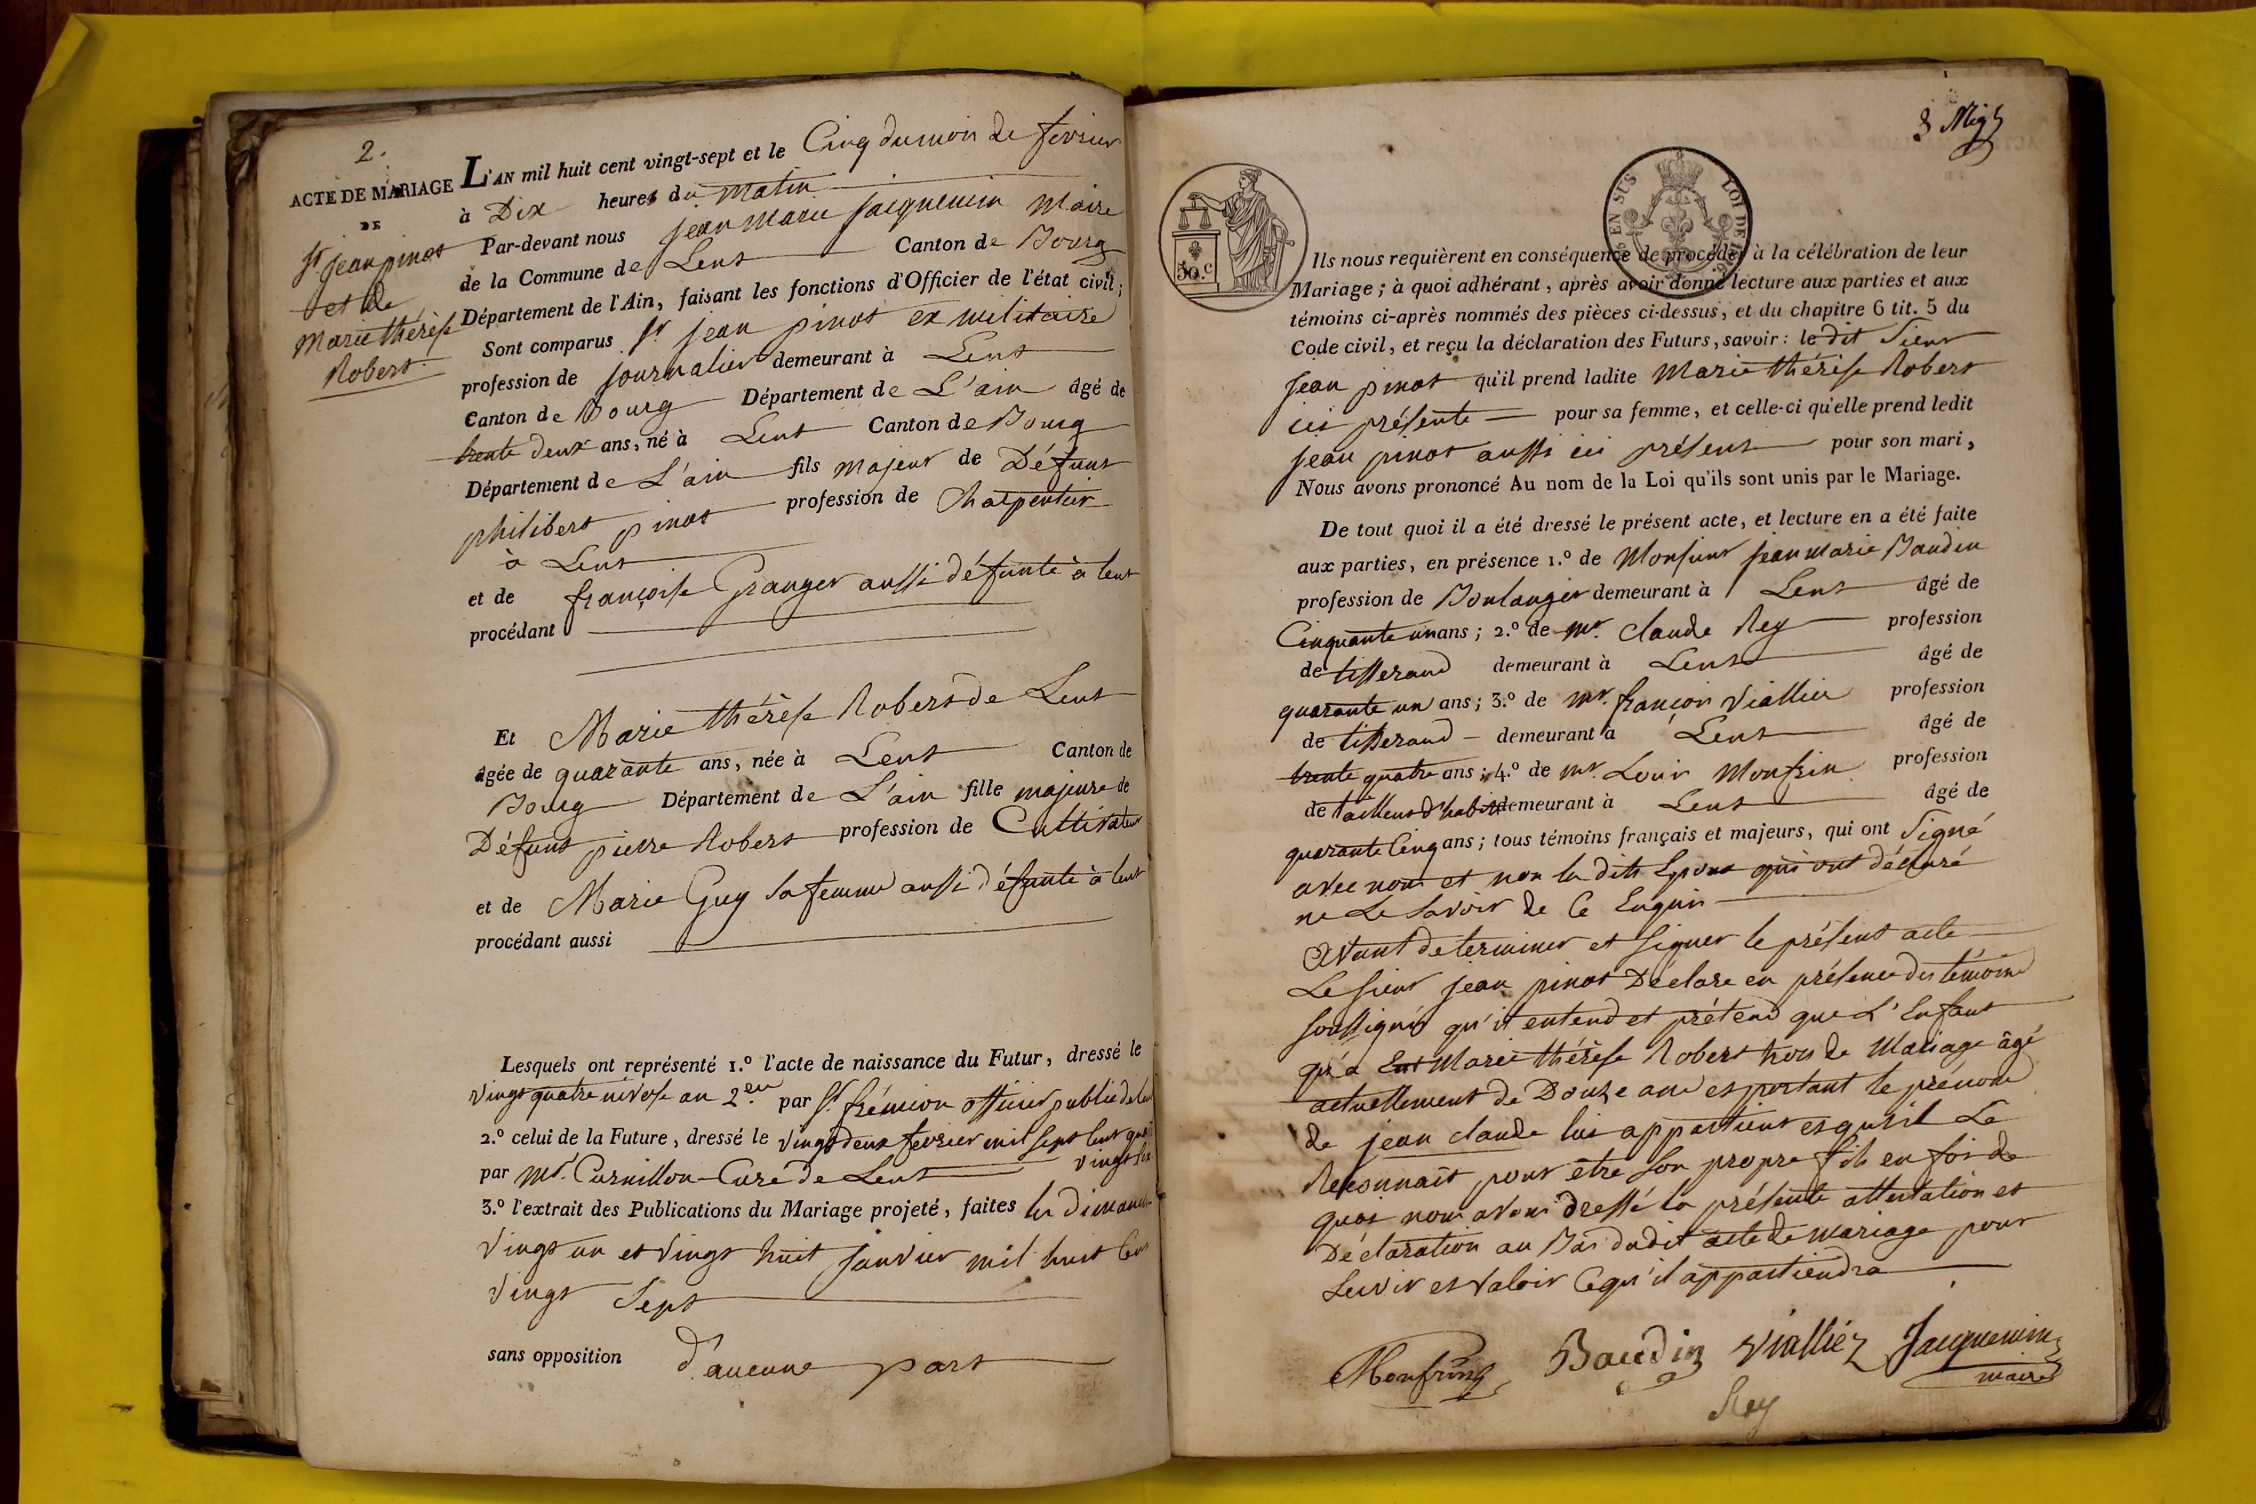 2.
ACTE DE MARIAGE
DE
Sr. jean pinot
et de
Marie thérèse
Robert.
L'AN mil huit cent vingt-sept et le Cinq du mois de fevrier
à Dix heures du Matin
Par-devant nous jean Marie Jacquemin Maire
de la Commune de Lent Canton de Bourg
Département de l'Ain, faisant les fonctions d'Officier de l'état civil;
Sont comparus Sr. jean pinot ex militaire
profession de journalier demeurant à Lent
Canton de Bourg Département de L'ain âgé de
trente deux ans, né à Lent Canton de Bourg
Département de L'ain fils majeur de Défunt
philibert pinot profession de Charpentier
à Lent
et de françoise Granger aussi défunte à lent
procédant
Et Marie thérèse Robert de Lent
âgée de quarante ans, née à Lent Canton de
Bourg Département de L'ain fille majeure de
Défunt pierre Robert profession de Cultivateur
et de Marie Guy sa femme aussi défunte à lent
procédant aussi
Lesquels ont représenté 1.º l'acte de naissance du Futur, dressé le
vingt quatre nivose an 2.em par Sr. frémion officier public de lent
2.º celui de la Future, dressé le vingt deux fevrier mil sept cent quatre
vingt six
par Mr. Curnillon Curé de Lent
3.º l'extrait des Publications du Mariage projeté, faites les dimanches
vingt un et vingt huit janvier mil huit Cent
vingt Sept
sans opposition d'aucune part
3
50.C
EN SUS LOI DE
Ils nous requièrent en conséquence de procéder à la célébration de leur
Mariage; à quoi adhérant, après avoir donné lecture aux parties et aux
témoins ci-après nommés des pièces ci-dessus, et du chapitre 6 tit. 5 du
Code civil, et reçu la déclaration des Futurs, savoir: le dit Sieur
jean pinot qu'il prend ladite Marie thérèse Robert
ici présente pour sa femme, et celle-ci qu'elle prend ledit
jean pinot aussi ici présent pour son mari,
Nous avons prononcé Au nom de la Loi qu'ils sont unis par le Mariage.
De tout quoi il a été dressé le présent acte, et lecture en a été faite
aux parties, en présence 1.º de Monsieur jean marie Baudin
profession de Boulanger demeurant à Lent âgé de
Cinquante un ans; 2.º de mr. claude Rey profession
de tisserand demeurant à Lent âgé de
quarante un ans; 3.º de mr. françois Viallier profession
de tisserand demeurant à Lent âgé de
trente quatre ans; 4.º de mr. Louis Monfrin profession
de tailleur d'habit demeurant à Lent âgé de
quarante Cinq ans; tous témoins français et majeurs, qui ont Signé
avec nous et non les dits Epoux qui ont déclaré
ne Le Savoir de Ce Enquis
Avant de terminer et signer le présent acte
Le sieur jean pinot Déclare en présence des témoins
soussignés qu'il entend et prétend que L'Enfant
qu'a Eut Marie thérèse Robert hors de Mariage âgé
actuellement de Douze ans et portant le prénom
de jean claude lui appartient et qu'il Le
Reconnait pour être son propre fils en foi de
quoi nous avons dressé la présente attestation et
Déclaration au Bas dudit acte de mariage pour
Servir et valoir Ce qu'il appartiendra
Monfrin Baudin Viallier Jacquemin
maire
Rey